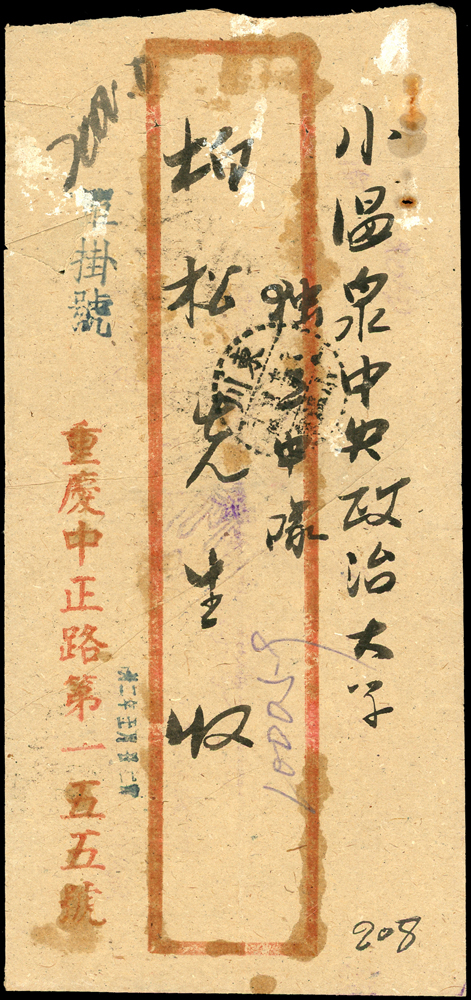 小温泉中央政治大学
独立中隊
柏松先生收
單掛號
重慶中正路第一五五號
東川
100059
208